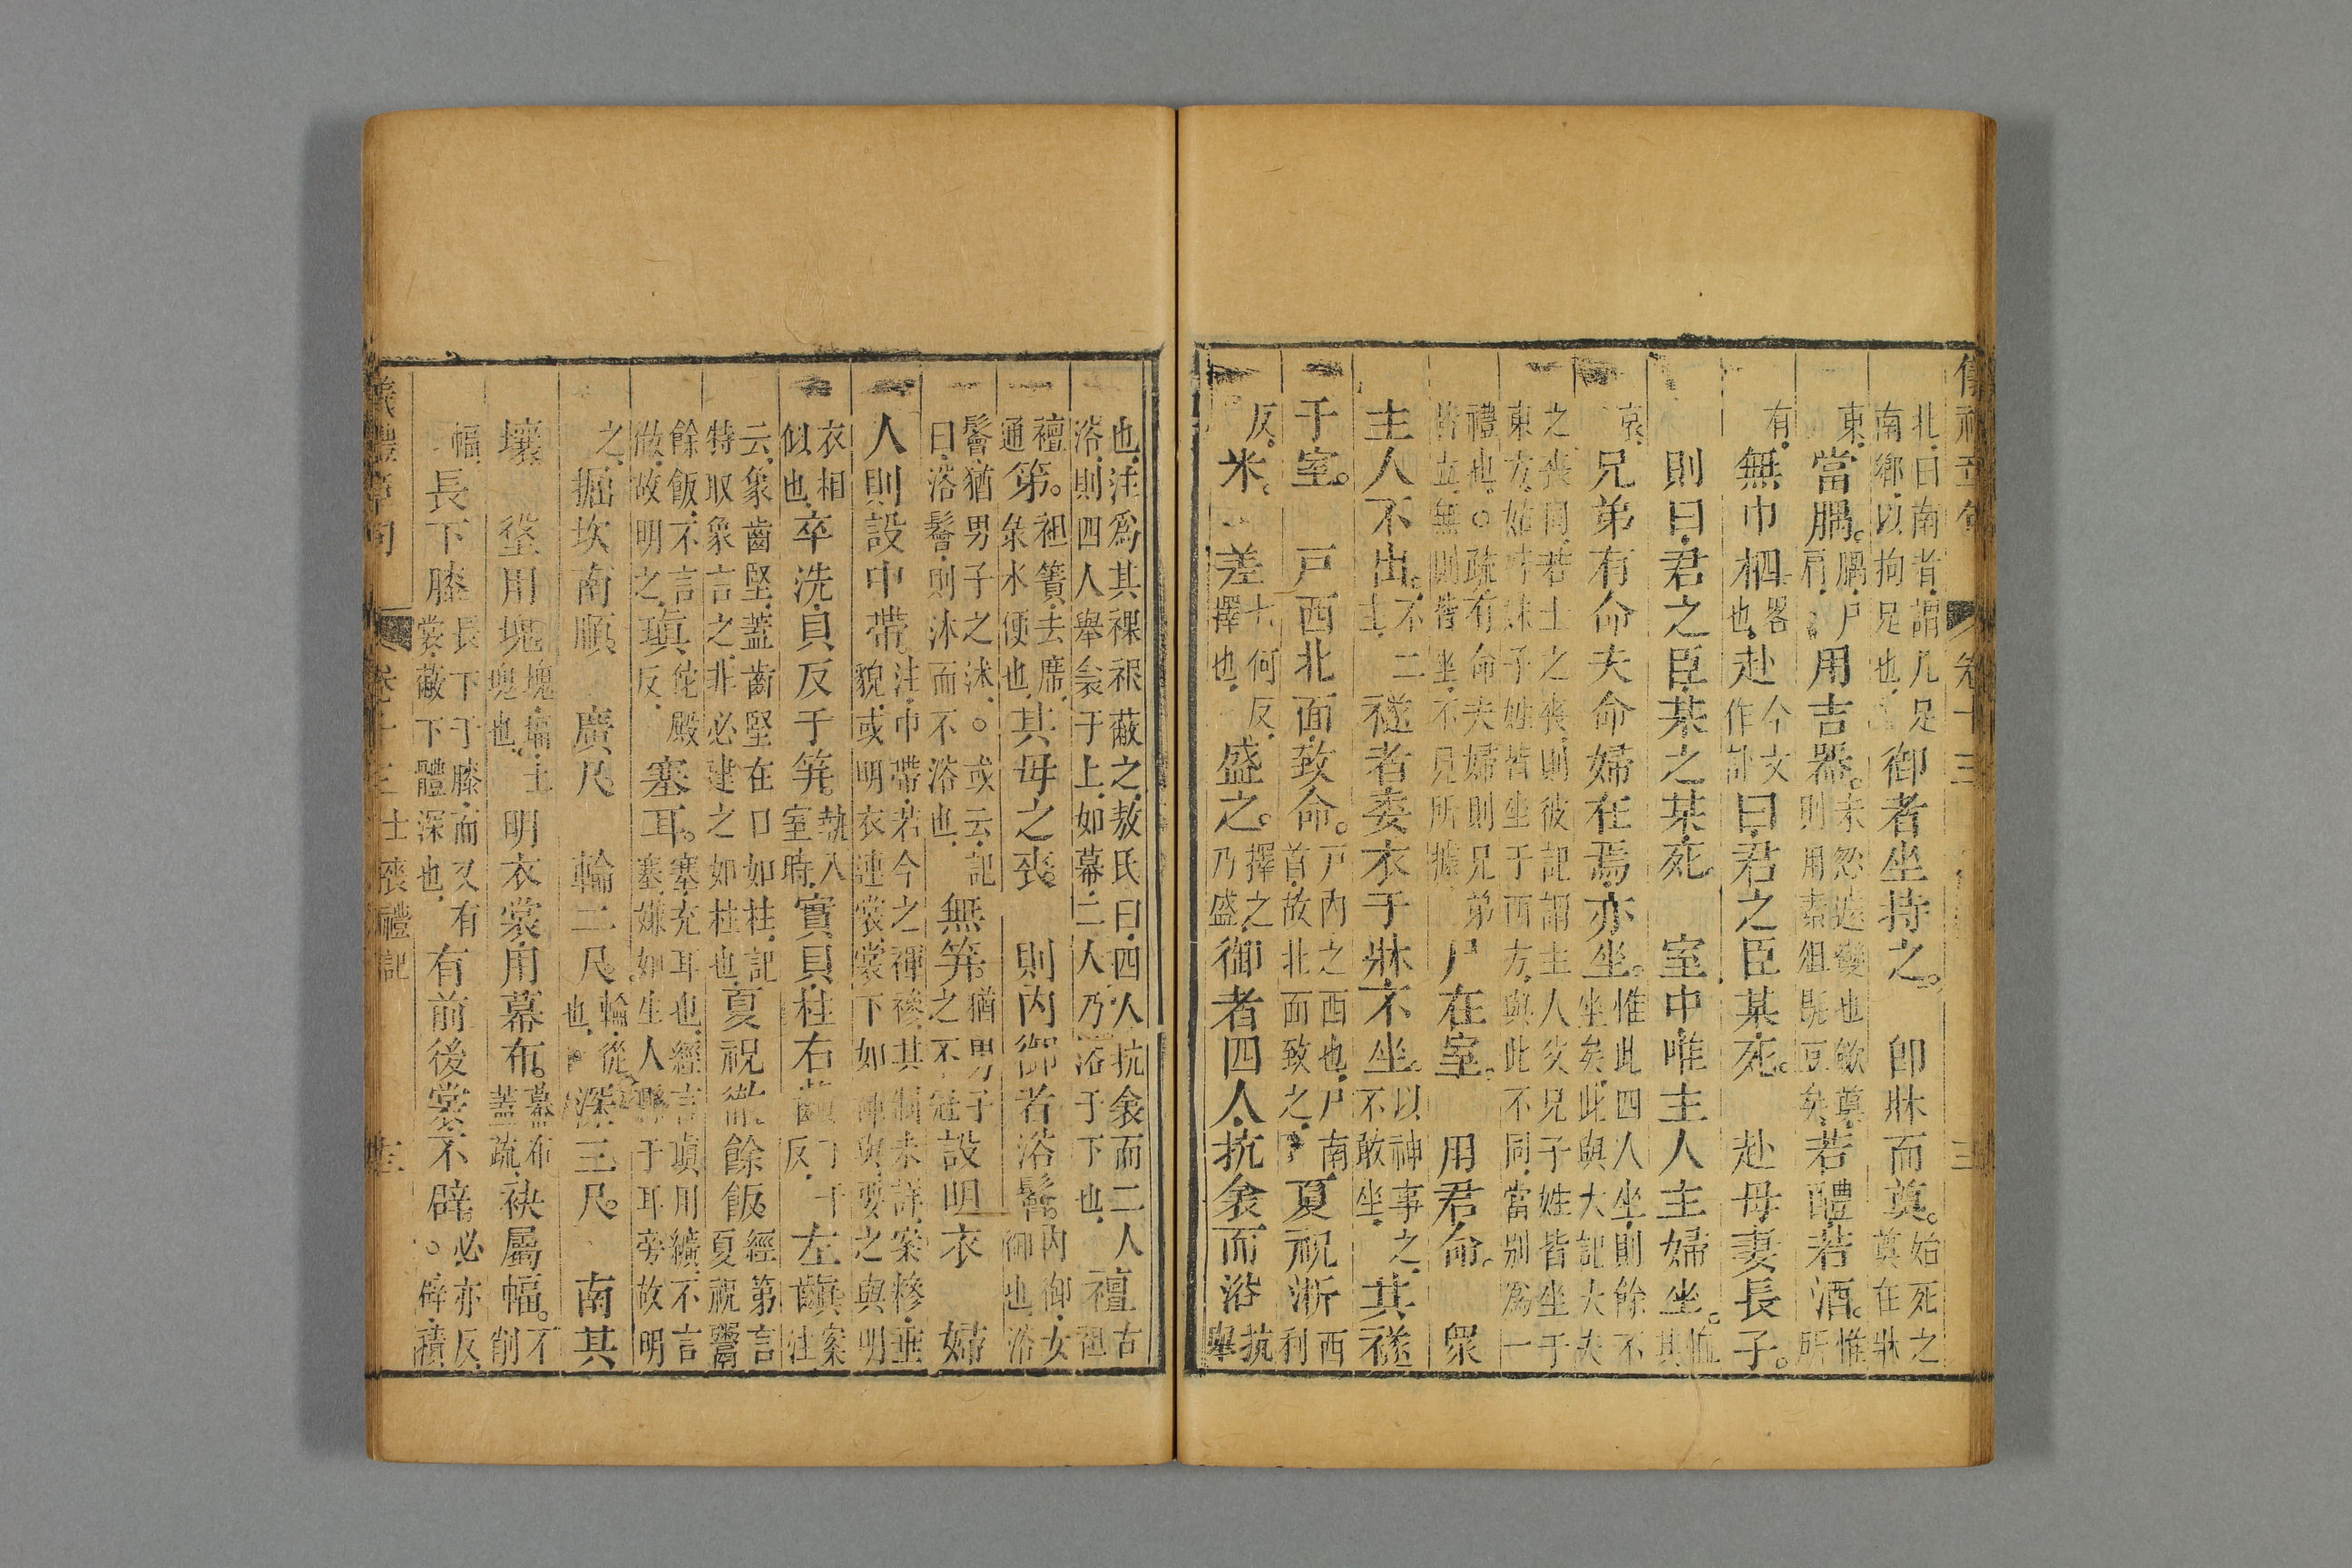 儀禮章句 卷十三 三
北曰南者謂几足
南鄉以拘足也 御者坐持之。 卽牀而奠。始死之
奠在牀
東 當腢。腢尸
肩 用吉器。未忍遽變也
則用素俎 斂奠
豆矣 若醴若酒。惟
所
有 無巾柶畧
也 赴今文
作訃 曰君之臣某死。 赴母妻長子。
則曰君之臣某之某死 室中唯主人主婦坐。
哀 兄弟有命夫命婦在焉亦坐。惟此四人坐則餘不
坐矣此與大記大夫
之喪同若士之喪則彼記謂主人父兄子姓皆坐于
東方姑姊妹子姓皆坐于西方與此不同當別爲一
禮也○疏有命夫婦則兄弟
皆立無則皆坐不見所據 尸在室。 用君命。 衆
主人不出。不二
主 襚者委衣于牀不坐。以神事之
不敢坐 其襚
于室。 戶西北面致命。戶內之西也尸南
首故北面致之 夏祝淅西
利
反 米。 差七何反
擇也 盛之。擇之
乃盛 御者四人抗衾而浴抗
舉
也注爲其裸裎蔽之敖氏曰四人抗衾而二人
浴則四人舉衾于上如幕二人乃浴于下也 襢古
袒
襢
通 笫。袒簀去席
盝水便也 其母之喪。 則內御者浴鬠。內御女
御也浴
鬠猶男子之沐○或云記
曰浴鬠則沐而不浴也 無笄。猶男子
之不冠 設明衣 婦
人則設中帶注巾帶若今之褌襂其制未詳案襂垂
貌或明衣連裳裳下如褌與要之與明
衣相
似也 卒洗貝反于笄。執入
室時 實貝柱右齻丁千
反 左齻案
注
云象齒堅蓋齒堅在口如柱記
特取象言之非必建之如柱也 夏祝徹餘飯。經第言
夏祝鬻
餘飯不言
徹故明之 瑱佗殿
反 塞耳。塞充耳也經言瑱用纊不言
塞嫌如生人縣于耳旁故明
之 掘坎南順 廣尺 輪二尺。輪從
也 深三尺。 南其
壤 垼用塊塊堛土
塊也 明衣裳用幕布。幕布
蓋疏 袂屬幅。不
削
幅 長下膝長下于膝而又有
裳蔽下體深也 有前後裳不辟。必亦反
○辟積
儀禮章句 卷十三士喪禮記